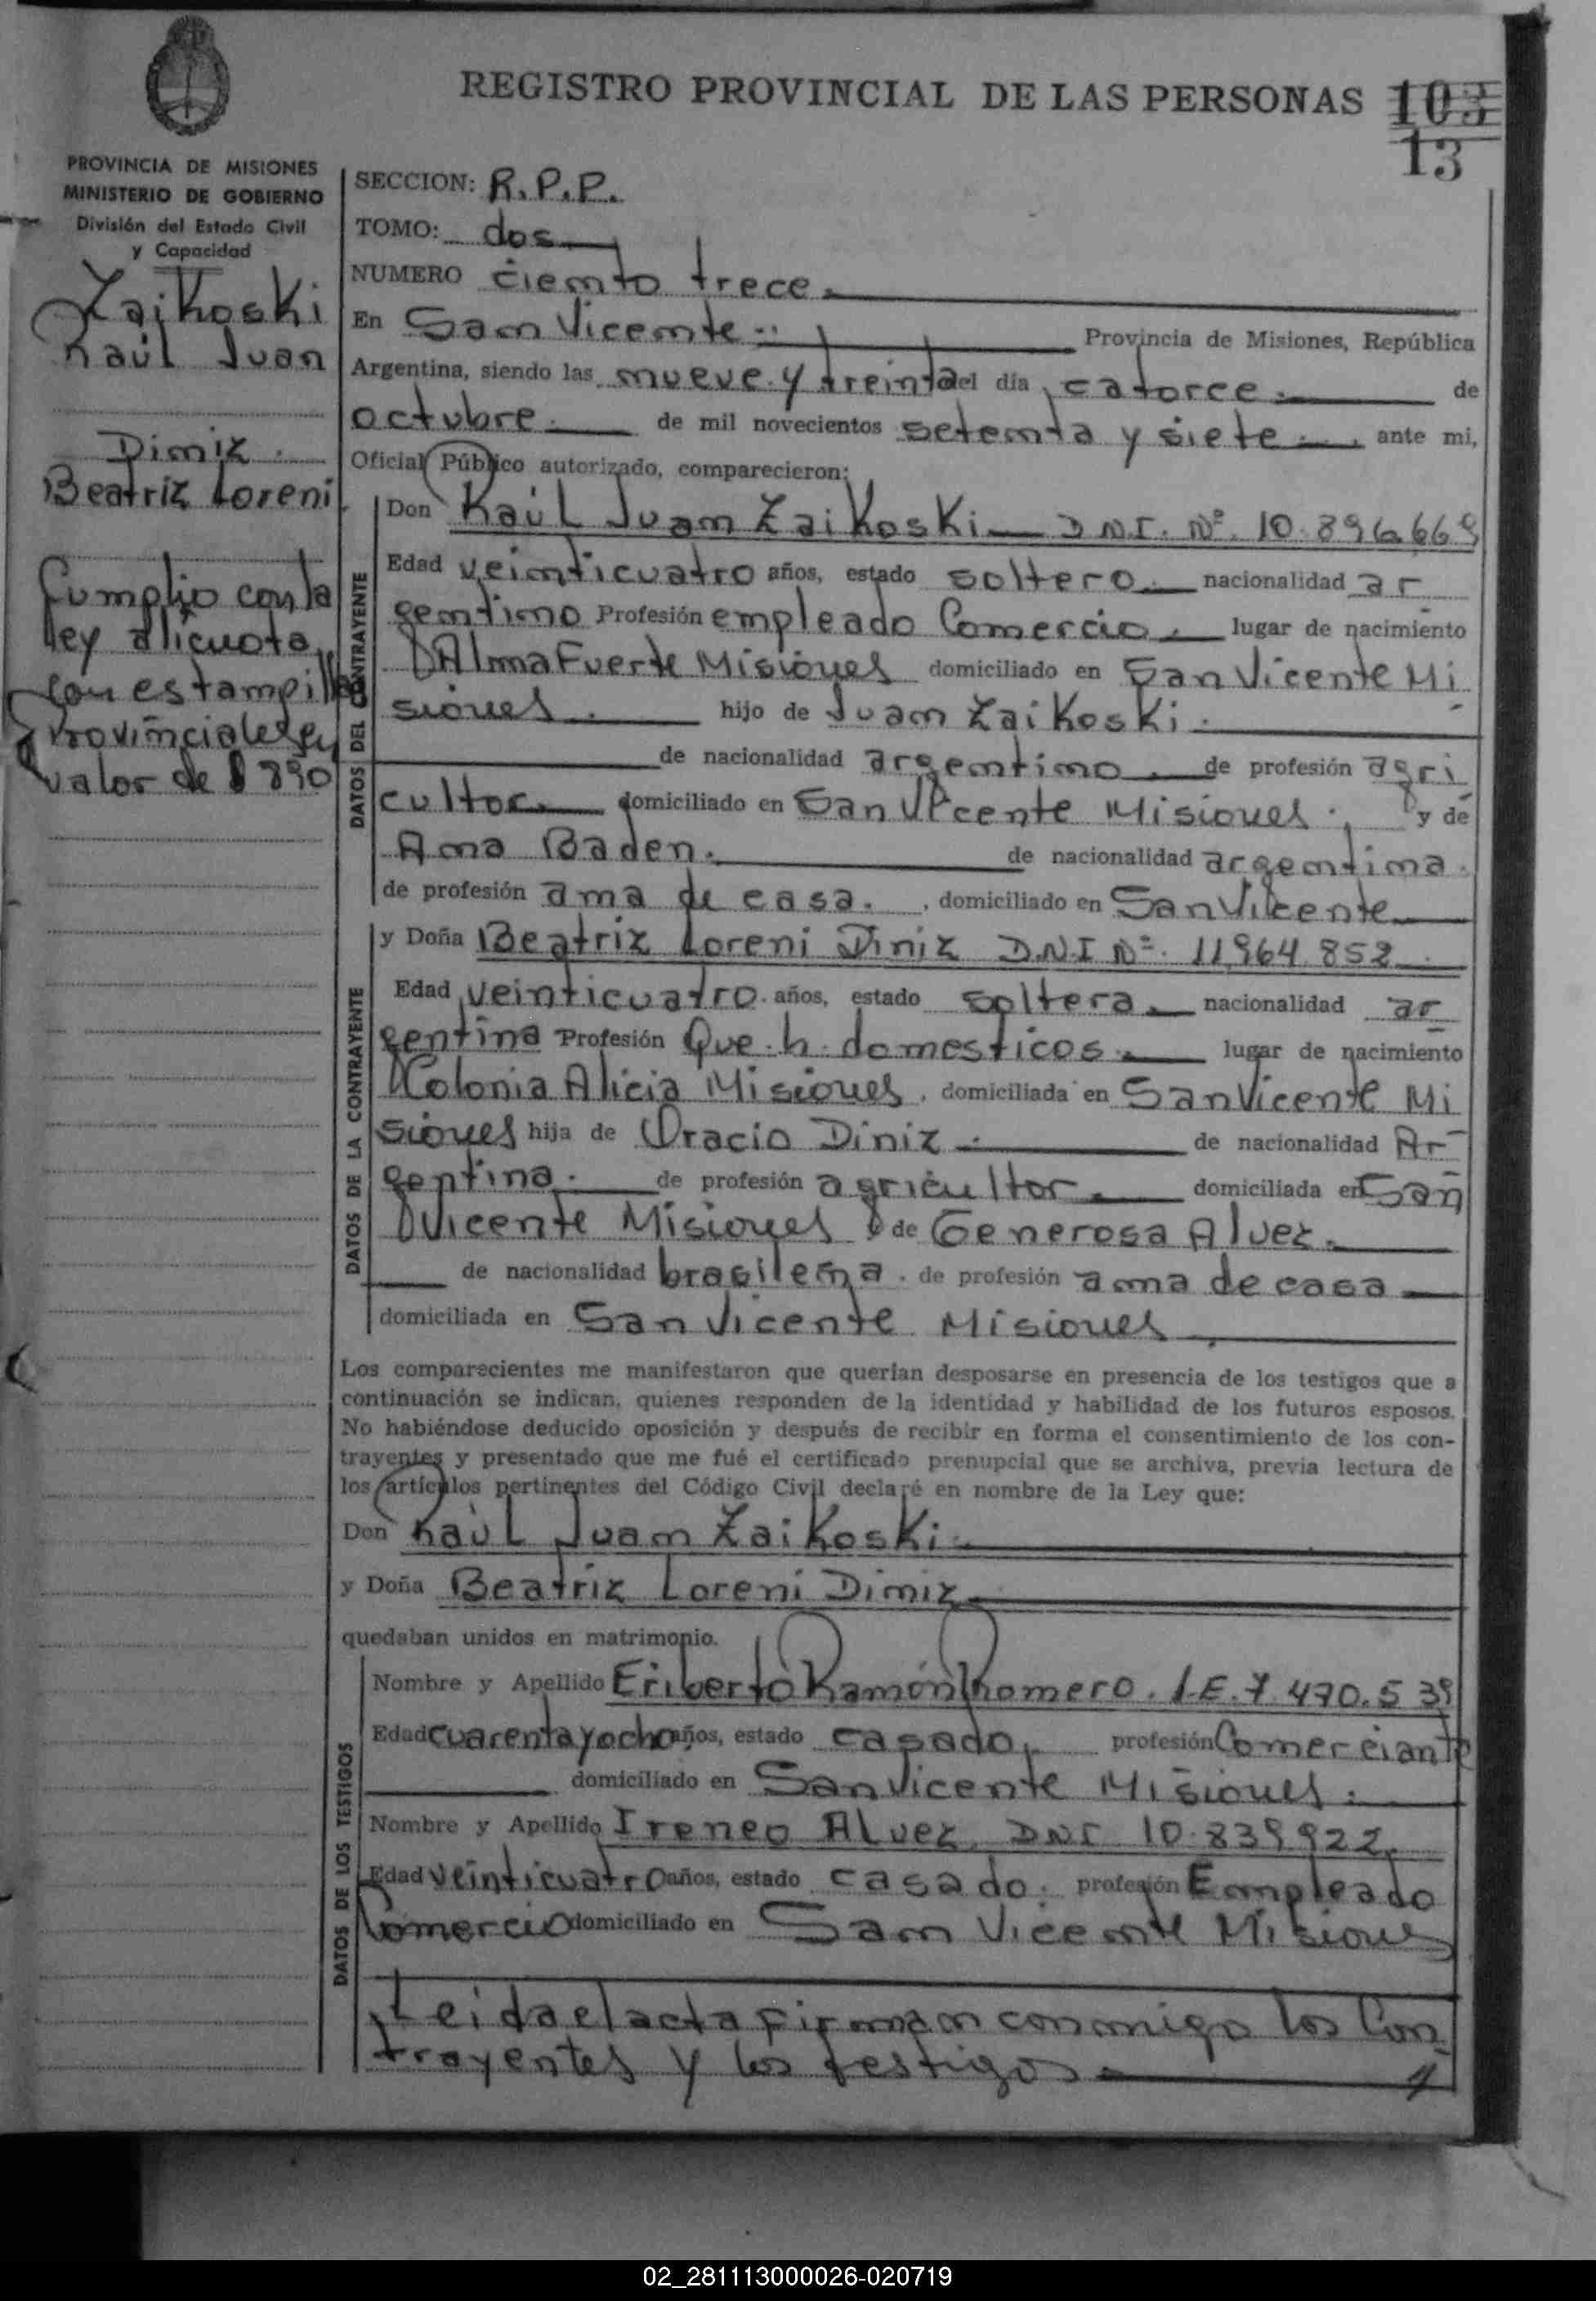 REGISTRO PROVINCIAL DE LAS PERSONAS 103
13
PROVINCIA DE MISIONES
MINISTERIO DE GOBIERNO
División del Estado Civil
y Capacidad
Zaikoski
Raúl Juan
Diniz.
Beatriz Loreni
Cumplio con la
ley alicuota
con estampillas
Provinciales
valor de $ 890
SECCION: R.P.P.
TOMO: dos
NUMERO ciento trece.
En San Vicente Provincia de Misiones, República
Argentina, siendo las nueve y treinta del día catorce. de
octubre. de mil novecientos setenta y siete. ante mi,
Oficial Público autorizado, comparecieron:
DATOS DEL CONTRAYENTE
Don Raúl Juan Zaikoski D.N.I. Nº. 10.896.669
Edad veinticuatro años, estado soltero. nacionalidad ar
gentino Profesión empleado Comercio. lugar de nacimiento
Alma Fuerte Misiones domiciliado en San Vicente Mi
siones. hijo de Juan Zaikoski.
de nacionalidad argentino. de profesión agri
cultor. domiciliado en San Vicente Misiones. y de
Ana Baden. de nacionalidad argentina.
de profesión ama de casa. , domiciliado en San Vicente
DATOS DE LA CONTRAYENTE
y Doña Beatriz Loreni Diniz D.N.I Nº. 11.964.852
Edad veinticuatro. años, estado soltera. nacionalidad ar
gentina Profesión Que.h.domesticos. lugar de nacimiento
Colonia Alicia Misiones, domiciliada en San Vicente Mi
siones hija de Oracio Diniz. de nacionalidad Ar
gentina. de profesión agricultor. domiciliada en San
Vicente Misiones y de Generosa Alvez.
de nacionalidad brasileña. de profesión ama de casa
domiciliada en San Vicente Misiones
Los comparecientes me manifestaron que querían desposarse en presencia de los testigos que a
continuación se indican, quienes responden de la identidad y habilidad de los futuros esposos.
No habiéndose deducido oposición y después de recibir en forma el consentimiento de los con-
trayentes y presentado que me fué el certificado prenupcial que se archiva, previa lectura de
los artículos pertinentes del Código Civil declaré en nombre de la Ley que:
Don Raúl Juan Zaikoski.
y Doña Beatriz Loreni Diniz
quedaban unidos en matrimonio.
DATOS DE LOS TESTIGOS
Nombre y Apellido Eriberto Ramón Romero. L.E. 7.470.539
Edad cuarenta y ocho años, estado casado, profesión Comerciante
domiciliado en San Vicente Misiones.
Nombre y Apellido Ireneo Alvez, DNI 10.839922.
Edad veinticuatro años, estado casado. profesión Empleado
Comercio domiciliado en San Vicente Misiones
Leida el acta firman conmigo los Con
trayentes y los testigos.
02_281113000026-020719